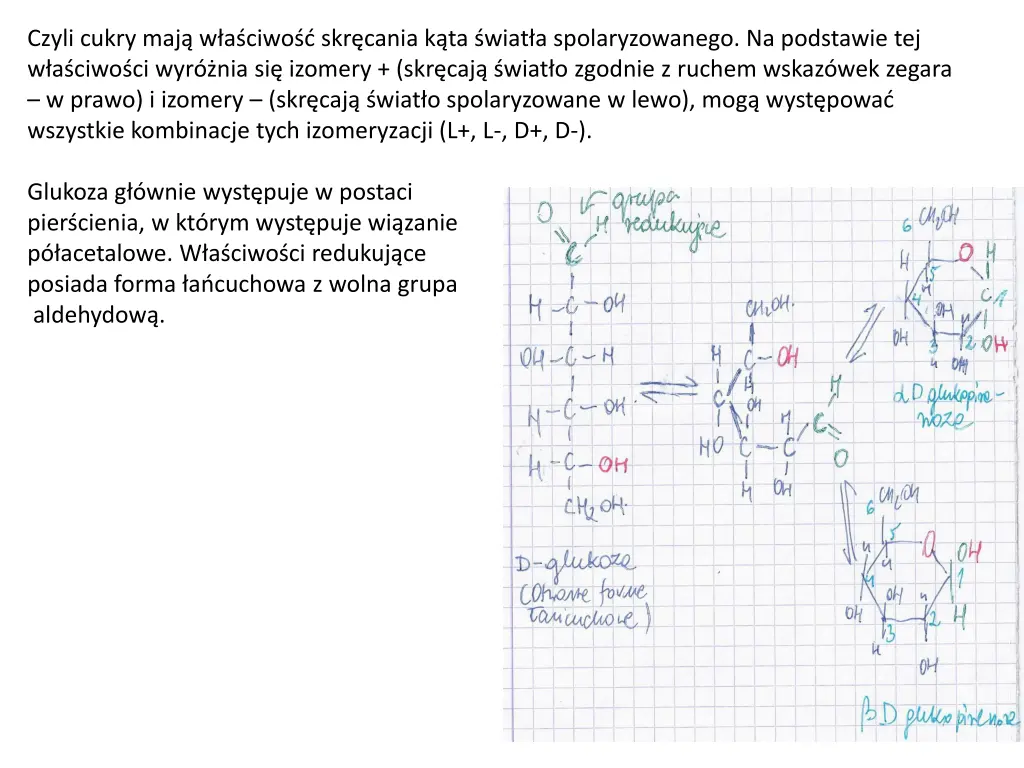 Czyli cukry mają właściwość skręcania kąta światła spolaryzowanego. Na podstawie tej
właściwości wyróżnia się izomery + (skręcają światło zgodnie z ruchem wskazówek zegara
– w prawo) i izomery – (skręcają światło spolaryzowane w lewo), mogą występować
wszystkie kombinacje tych izomeryzacji (L+, L-, D+, D-).
Glukoza głównie występuje w postaci
pierścienia, w którym występuje wiązanie
półacetalowe. Właściwości redukujące
posiada forma łańcuchowa z wolna grupa
aldehydową.
grupa
redukuje
O
H
C
H-C-OH
OH-C-H
H-C-OH
H-C-OH
CH2OH
D-glukoza
łańcuchowe)
CH2OH
H C-OH
H
C OH H C H
HO C-C O
H OH
6 CH2OH
H 5 O H
H
4 OH H C 1
OH 3 2 OH
H OH
αD glukopira-
noze
6 CH2OH
5 O OH
H H
4 OH H 1
OH 3 2 H
H OH
βD glukopiranoze